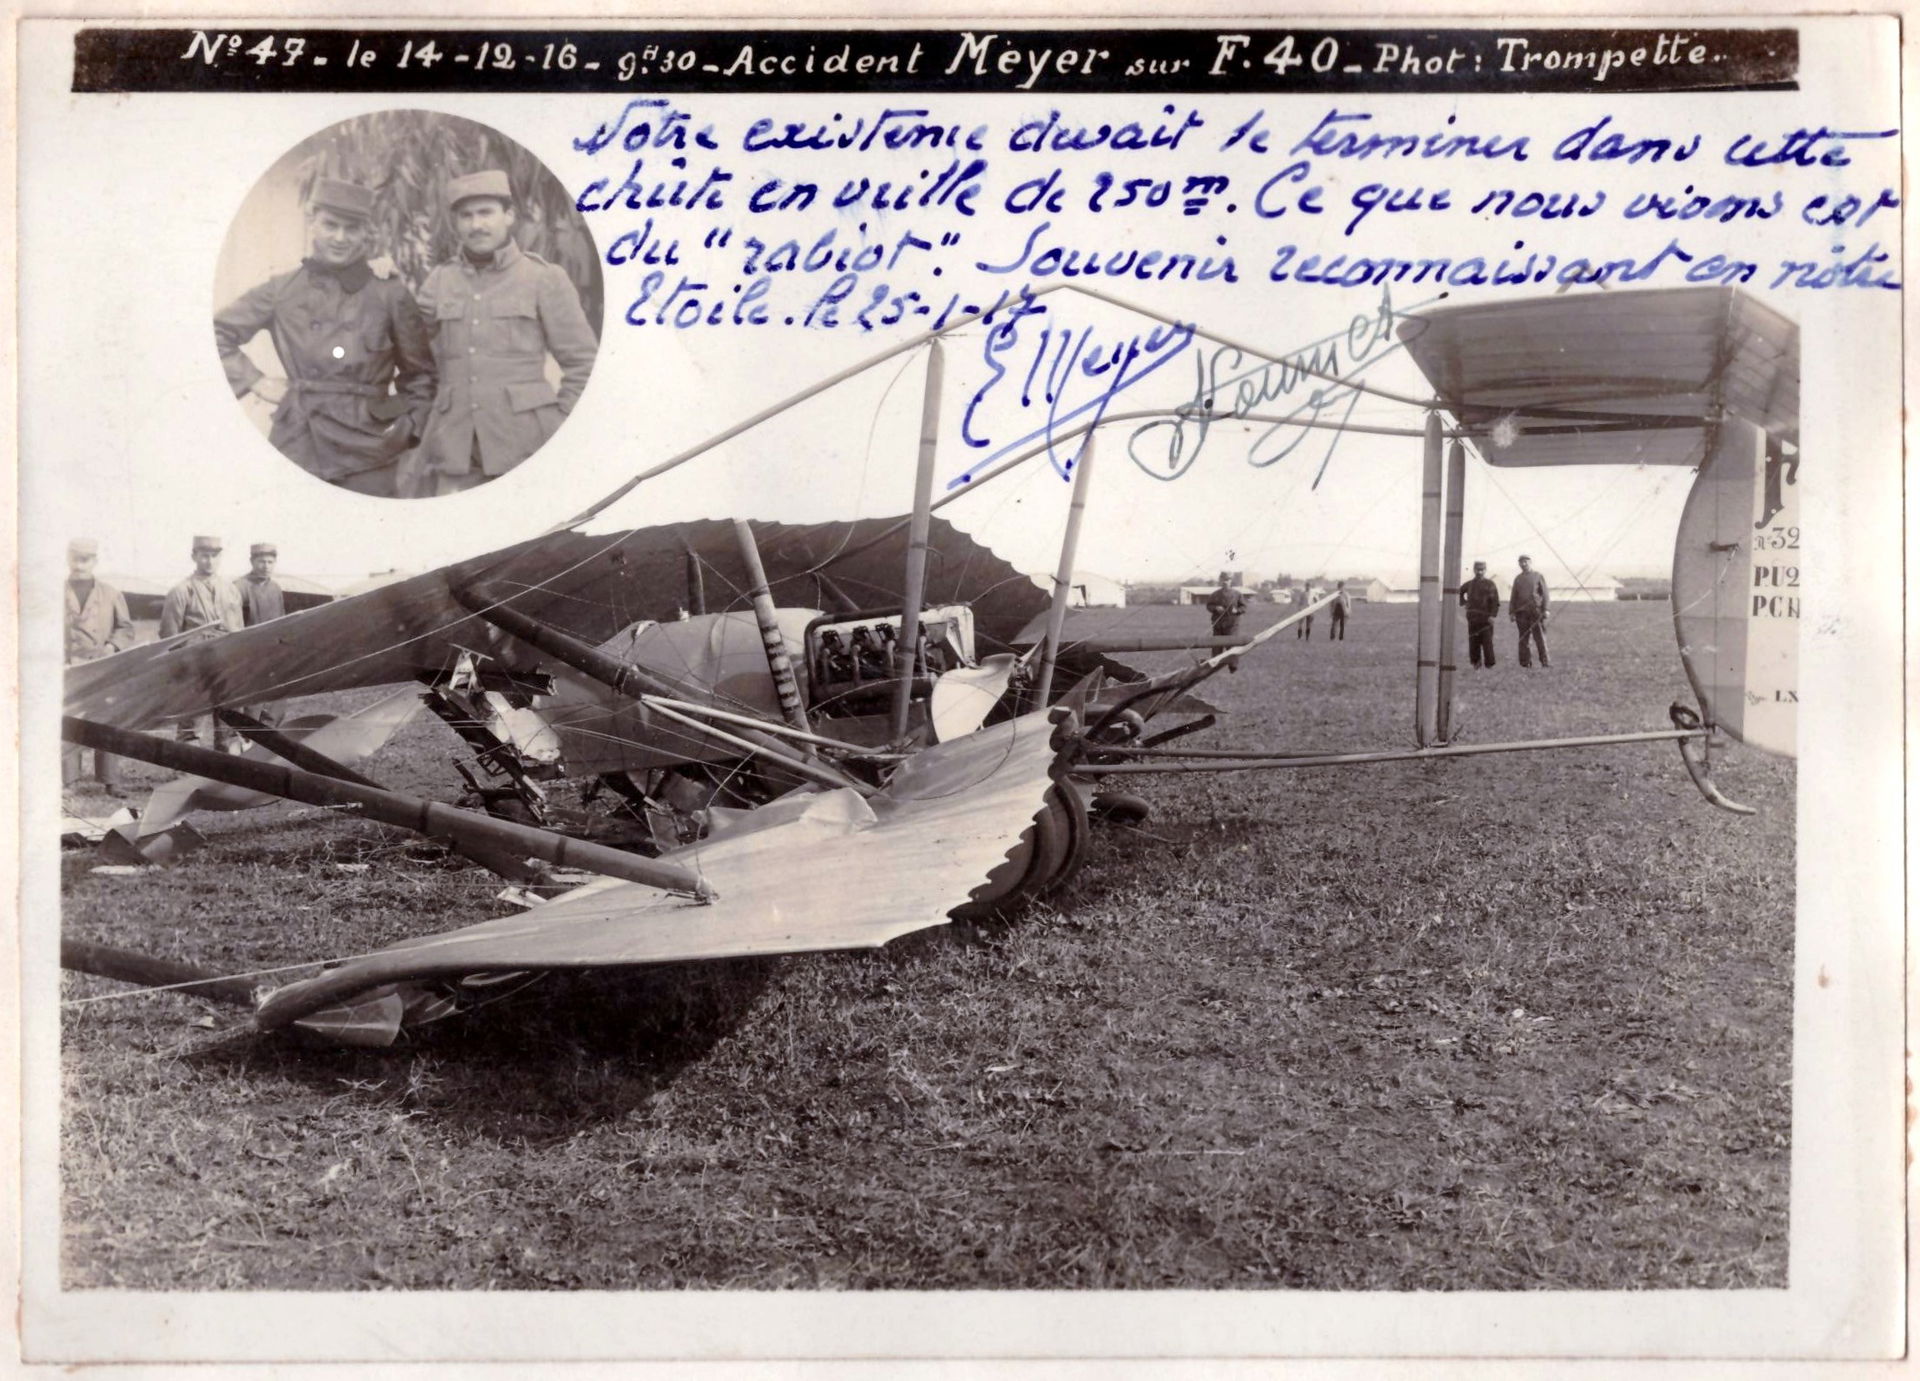 Nº 47 - le 14-12-16 - 9ᴴ30 - Accident Meyer sur F. 40 - Phot: Trompette.
Notre existence devait se terminer dans cette
chûte en vrille de 250ᵐ. Ce que nous vivons est
du "rabiot". Souvenir reconnaissant en nôtre
Etoile. le 25-1-17
E Meyer
F
N 32
PU2
PC
LX